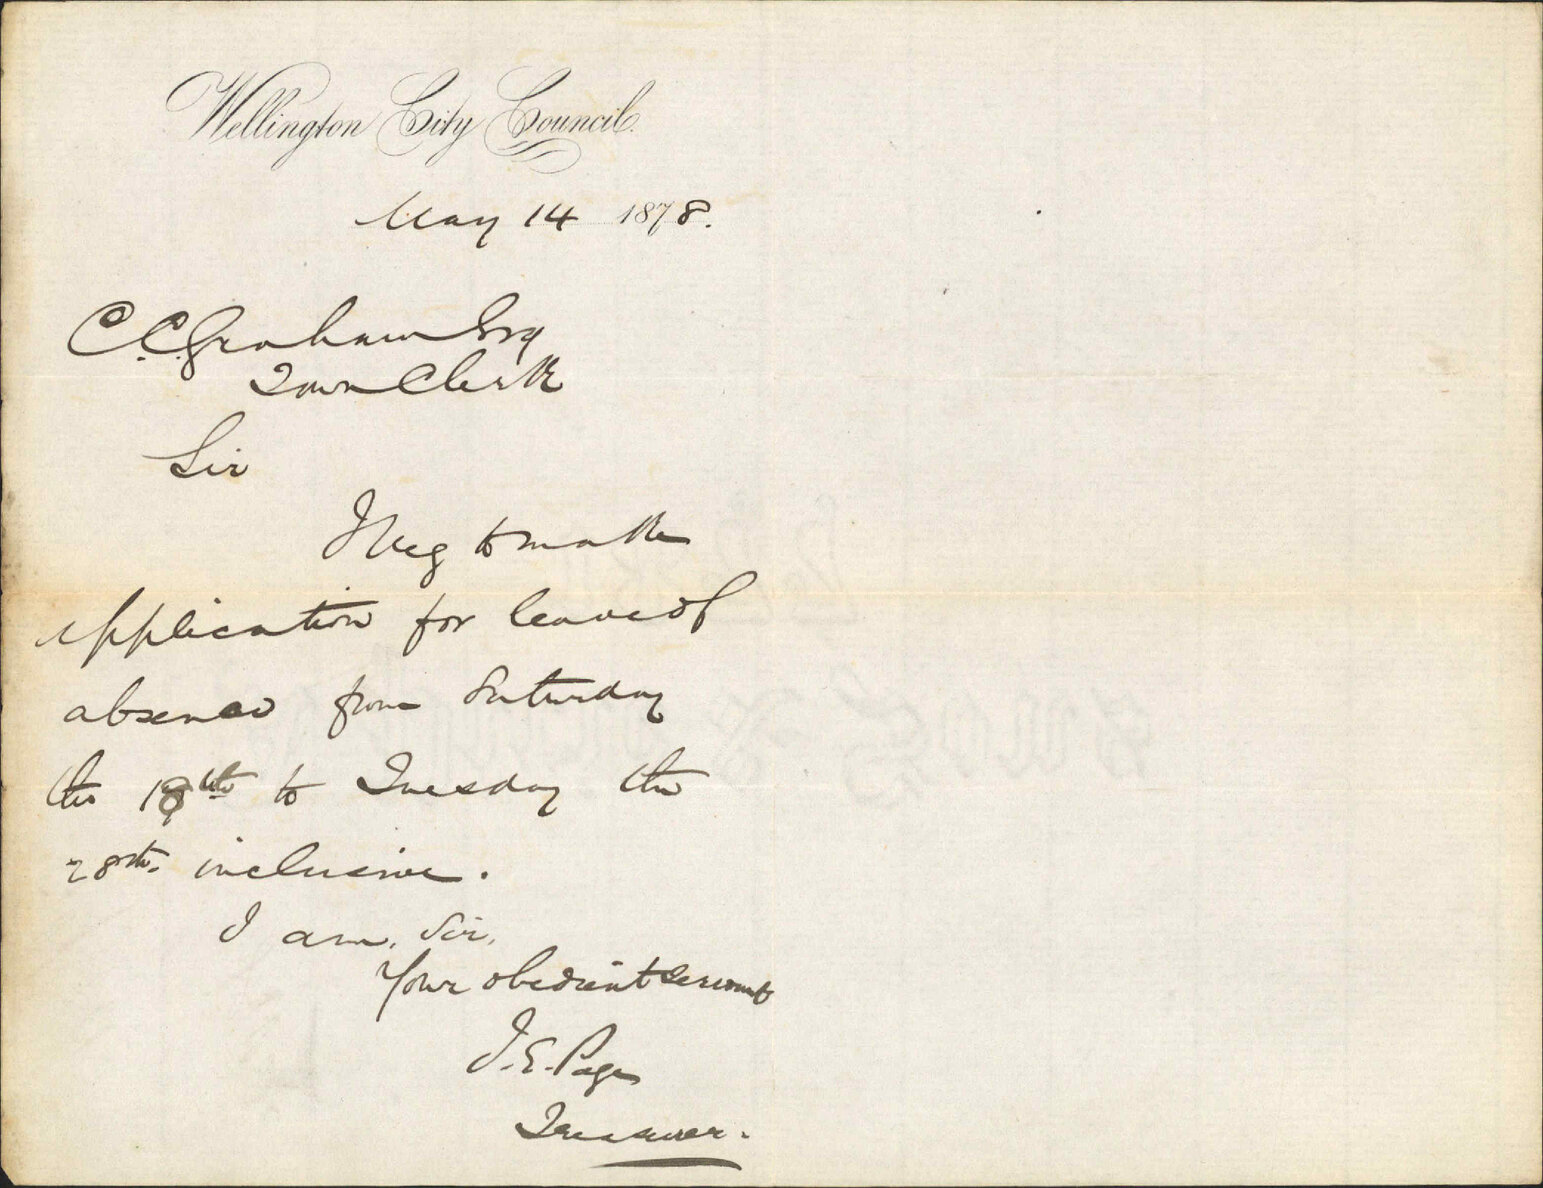 Wellington City Council.
May 14 1878.
C.C. Graham Esq
Town Clerk
Sir
I beg to make
application for leave of
absence from Saturday
the 18th to Tuesday the
28th. inclusive.
I am, Sir,
Your obedient servant
J.E. Page
Treasurer.